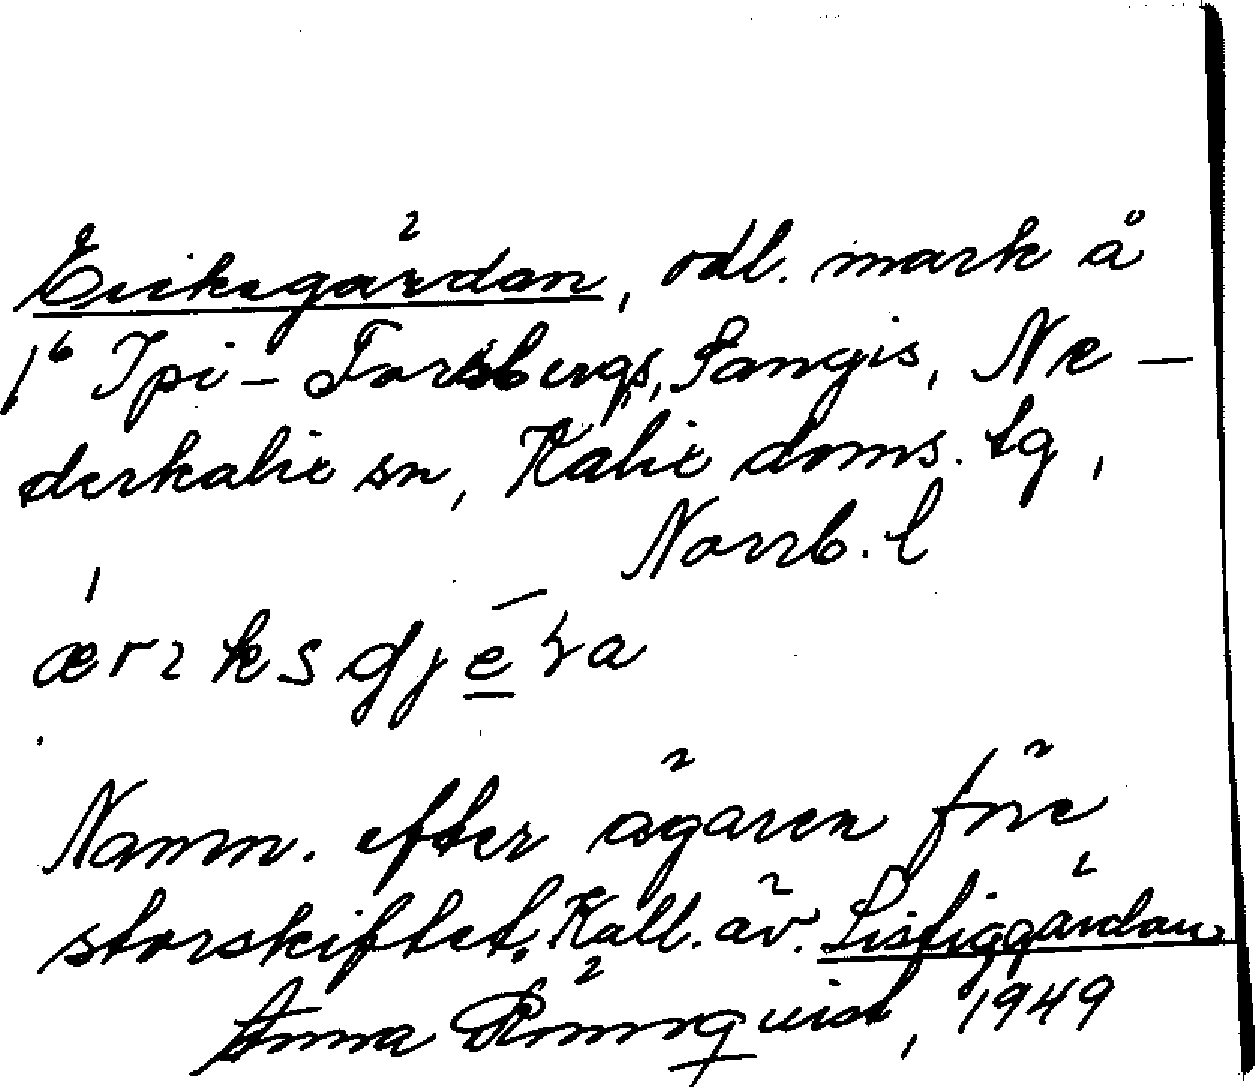 Eriksgärdan, odl. mark å
1⁶ Ipi-Forsbergs, Sangis, Ne-
derkalix sn, Kalix doms. tg,
Norrb. l
Namn. efter ägaren före
storskiftet. Kall. äv. Sisfiggärdan
Anna Rönnquist, 1949